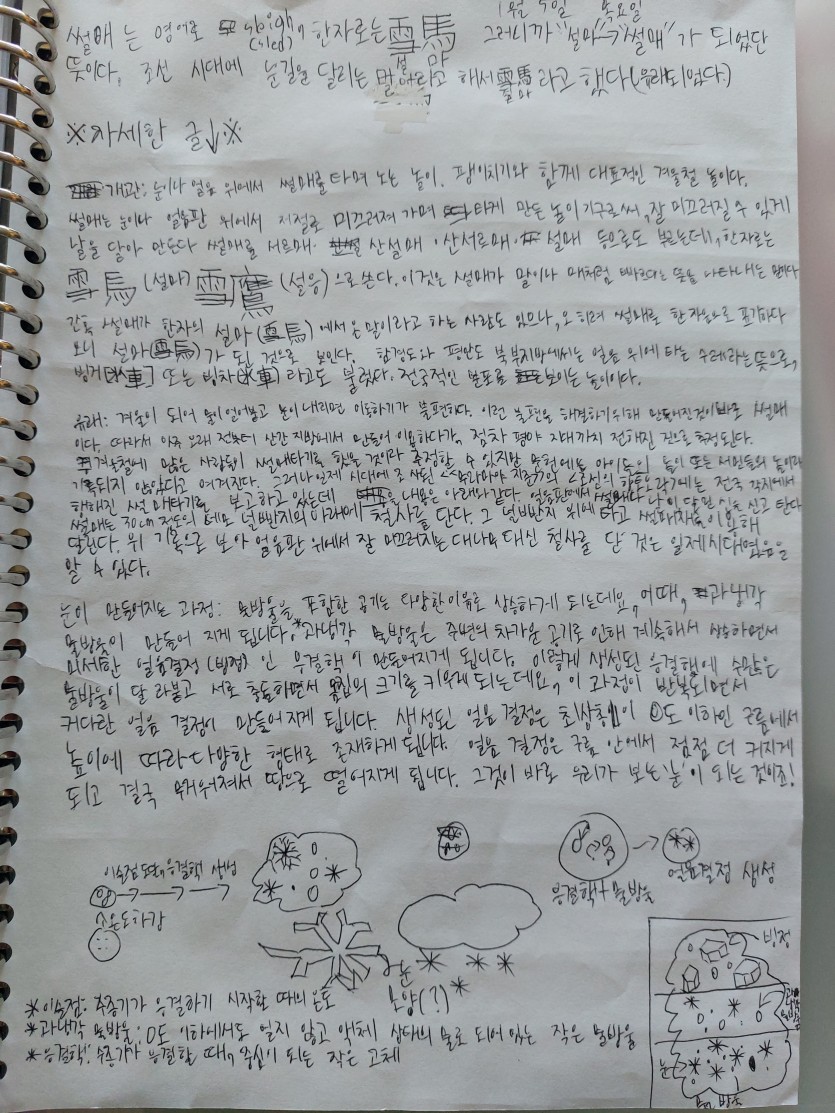 1월 9일 목요일
썰매는 영어로 sleigh, (sled) 한자로는 雪馬 그러니까 "설마"→"썰매"가 되었단
설마
뜻이다. 조선 시대에 눈길을 달리는 말이라고 해서 雪馬라고 했다(유래되었다.)
설마
※자세한 글↓※
개관: 눈이나 얼음 위에서 썰매를 타며 노는 놀이. 팽이치기와 함께 대표적인 겨울철 놀이다.
썰매는 눈이나 얼음판 위에서 저절로 미끄러져 가며 타게 만든 놀이기구로써, 잘 미끄러질 수 있게
날을 달아 만든다 썰매를 서르매· 산설매·산서르매· 설매 등으로도 부르는데, 한자로는
雪馬 (설마) 雪鷹 (설응)으로 쓴다. 이것은 썰매가 말이나 매처럼 빠르다는 뜻을 나타내는 말이다
간혹 썰매가 한자의 설마(雪馬)에서 온 말이라고 하는 사람도 있으나, 오히려 썰매를 한자음으로 표기하다
보니 설마(雪馬)가 된 것으로 보인다. 함경도와 평안도 북부지방에서는 얼음 위에 타는 수레라는 뜻으로,
빙거[氷車] 또는 빙차(氷車)라고도 불렀다. 전국적인 분포를 보이는 놀이이다.
유래: 겨울이 되어 물이 얼어붙고 눈이 내리면 이동하기가 불편하다. 이런 불편을 해결하기 위해 만들어진 것이 바로 썰매
이다. 따라서 아주 오래 전부터 산간 지방에서 만들어 이용하다가, 점차 평야 지대까지 전해진 것으로 추정된다.
겨울철에 많은 사람들이 썰매타기를 했을 것이라 추정할 수 있지만 문헌에는 아이들의 놀이 또는 서민들의 놀이라
기록되지 않았다고 여겨진다. 그러나 일제 시대에 조사된 <조선의 향토오락>에는 전국 각지에서
행해진 썰매타기를 보고하고 있는데 내용은 아래와 같다. 얼음판에서 썰매나 날이 달린 신을 신고 탄다
썰매는 30cm 정도의 네모 널빤지의 아래에 철사를 단다. 그 널빤지 위에 타고 썰매채를 이용해
달린다. 위 기록으로 보아 얼음판 위에서 잘 미끄러지는 대나무 대신 철사를 단 것은 일제시대였음을
알 수 있다.
눈이 만들어지는 과정: 물방울을 포함한 공기는 다양한 이유로 상승하게 되는데요, 이때, *과냉각
물방울이 만들어 지게 됩니다. *과냉각 물방울은 주변의 차가운 공기로 인해 계속해서 상승하면서
미세한 얼음결정(빙정)인 응결핵이 만들어지게 됩니다. 이렇게 생성된 응결핵에 수많은
물방울이 달라붙고 서로 충돌하면서 몸집의 크기를 키우게 되는데요, 이 과정이 반복되면서
커다란 얼음 결정이 만들어지게 됩니다. 생성된 얼음 결정은 최상층이 0도 이하인 구름에서
높이에 따라 다양한 형태로 존재하게 됩니다. 얼음 결정은 구름 안에서 점점 더 커지게
되고 결국 무거워져서 땅으로 떨어지게 됩니다. 그것이 바로 우리가 보는 '눈'이 되는 것이죠!
이슬점 도달, 응결핵 생성
온도하강
응결핵+물방울
얼음결정 생성
눈
모양(?)
빙정
과냉각 물방울
눈
물방울
*이슬점: 수증기가 응결하기 시작할 때의 온도
*과냉각 물방울: 0도 이하에서도 얼지 않고 액체 상태의 물로 되어 있는 작은 물방울
*응결핵: 수증기가 응결할 때, 중심이 되는 작은 고체